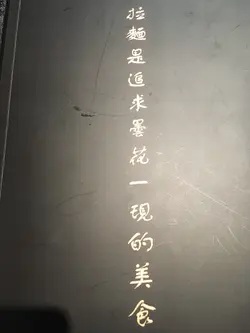 拉麵是追求墨花一現的美食